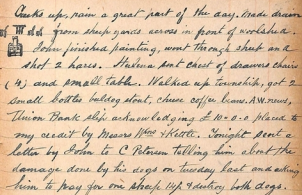 Creeks up, rain a great part of the day. Made drain
from sheep yards across in front of woolshed.
John finished painting, went through sheep and
shot 2 hares. Helena sent crest of drawers chairs
(4) and small table. Walked up township, got 2
small bottles bulldog stout, cheese coffee beans. A.W. news,
Union Bank slip acknowledging £10-0-0 placed to
my credit by Messrs Wm & Kettle. Tonight sent a
letter by John to C Petersen telling him about the
damage done by his dogs on tuesday last and asking
him to pay for one sheep 14/- & destroy both dogs